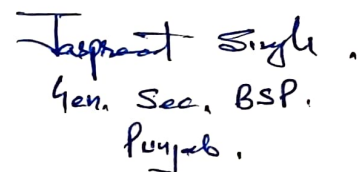 Jaspreet Singh.
Gen. Sec. BSP.
Punjab.